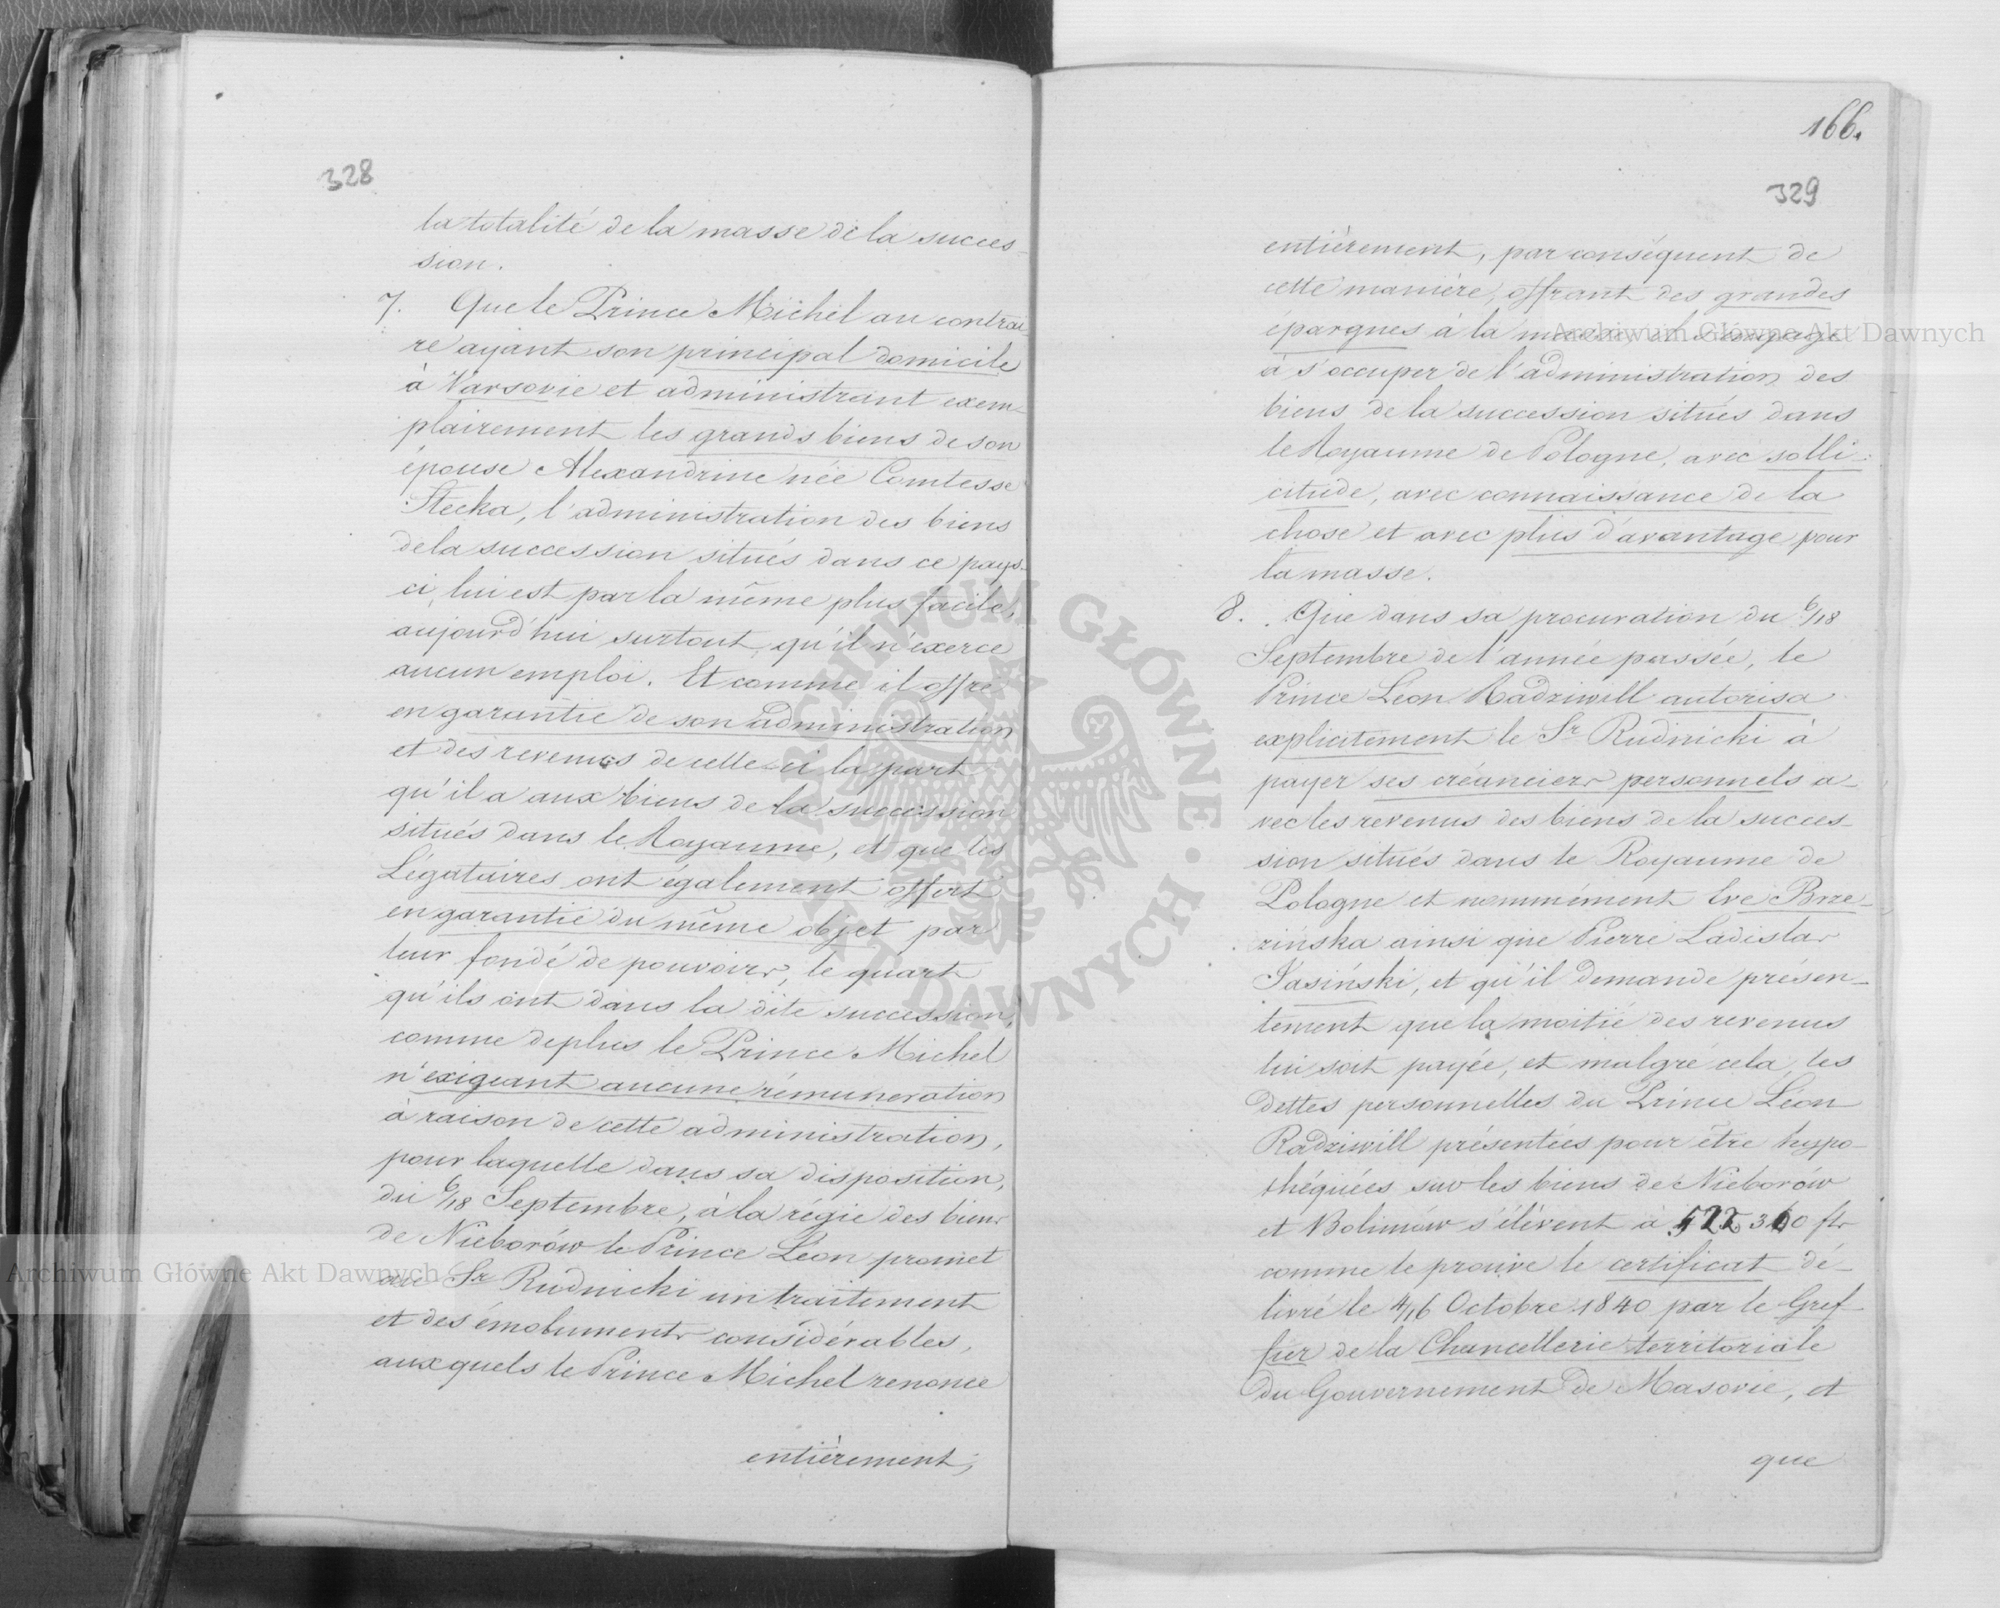 328
la totalité de la masse de la succes-
sion.
7. Que le Prince Michel au contrai
re ayant son principal domicile
à Varsovie et administrant exem-
plairement les grands biens de son
épouse Alexandrine née Comtesse
Stecka, l'administration des biens
de la succession situés dans ce pays-
ci, lui est par la même plus facile,
aujourd'hui surtout, qu'il n'exerce
aucun emploi. Et comme il offre
en garantie de son administration
et des revenus de celle-ci la part
qu'il a aux biens de la succession
situés dans le Royaume, et que les
Légataires ont egalement offert
en garantie du même objet par
leur fondé de pouvoirs, le quart
qu'ils ont dans la dite succession,
comme deplus le Prince Michel
n'exigeant aucune rémuneration
à raison de cette administration,
pour laquelle dans sa disposition,
du 6/18 Septembre, à la régie des biens
de Nieborów le Prince Léon promet
au Sr Rudnicki un traitement
et des émoluments considérables,
auxquels le Prince Michel renonce
entièrement,
166.
329
entièrement, par conséquent de
cette manière, offrant des grandes
épargnes à la masse, il s'engage
à s'occuper de l'administration des
biens de la succession situés dans
le Royaume de Pologne, avec solli-
citude, avec connaissance de la
chose et avec plus d'avantage pour
la masse.
8. Que dans sa procuration du 6/18
Septembre de l'année passée, le
Prince Léon Radziwill autorisa
explicitement le Sr Rudnicki à
payer ses créanciers personnels a-
vec les revenus des biens de la succes-
sion situés dans le Royaume de
Pologne et nommément Eve Brze-
zińska ainsi que Pierre Ladislas
Jasiński, et qu'il demande présen-
tement que la moitié des revenus
lui soit payée, et malgré cela, les
dettes personnelles du Prince Léon
Radziwill présentées pour être hypo-
théquées sur les biens de Nieborów
et Bolimów s'élèvent à 522,360 fls
comme le prouve le certificat dé-
livré le 4/16 Octobre 1840 par le Gref-
fier de la Chancellerie territoriale
du Gouvernement de Masovie, et
que
Archiwum Główne Akt Dawnych
Archiwum Główne Akt Dawnych
ARCHIWUM GŁÓWNE · AKT DAWNYCH ·